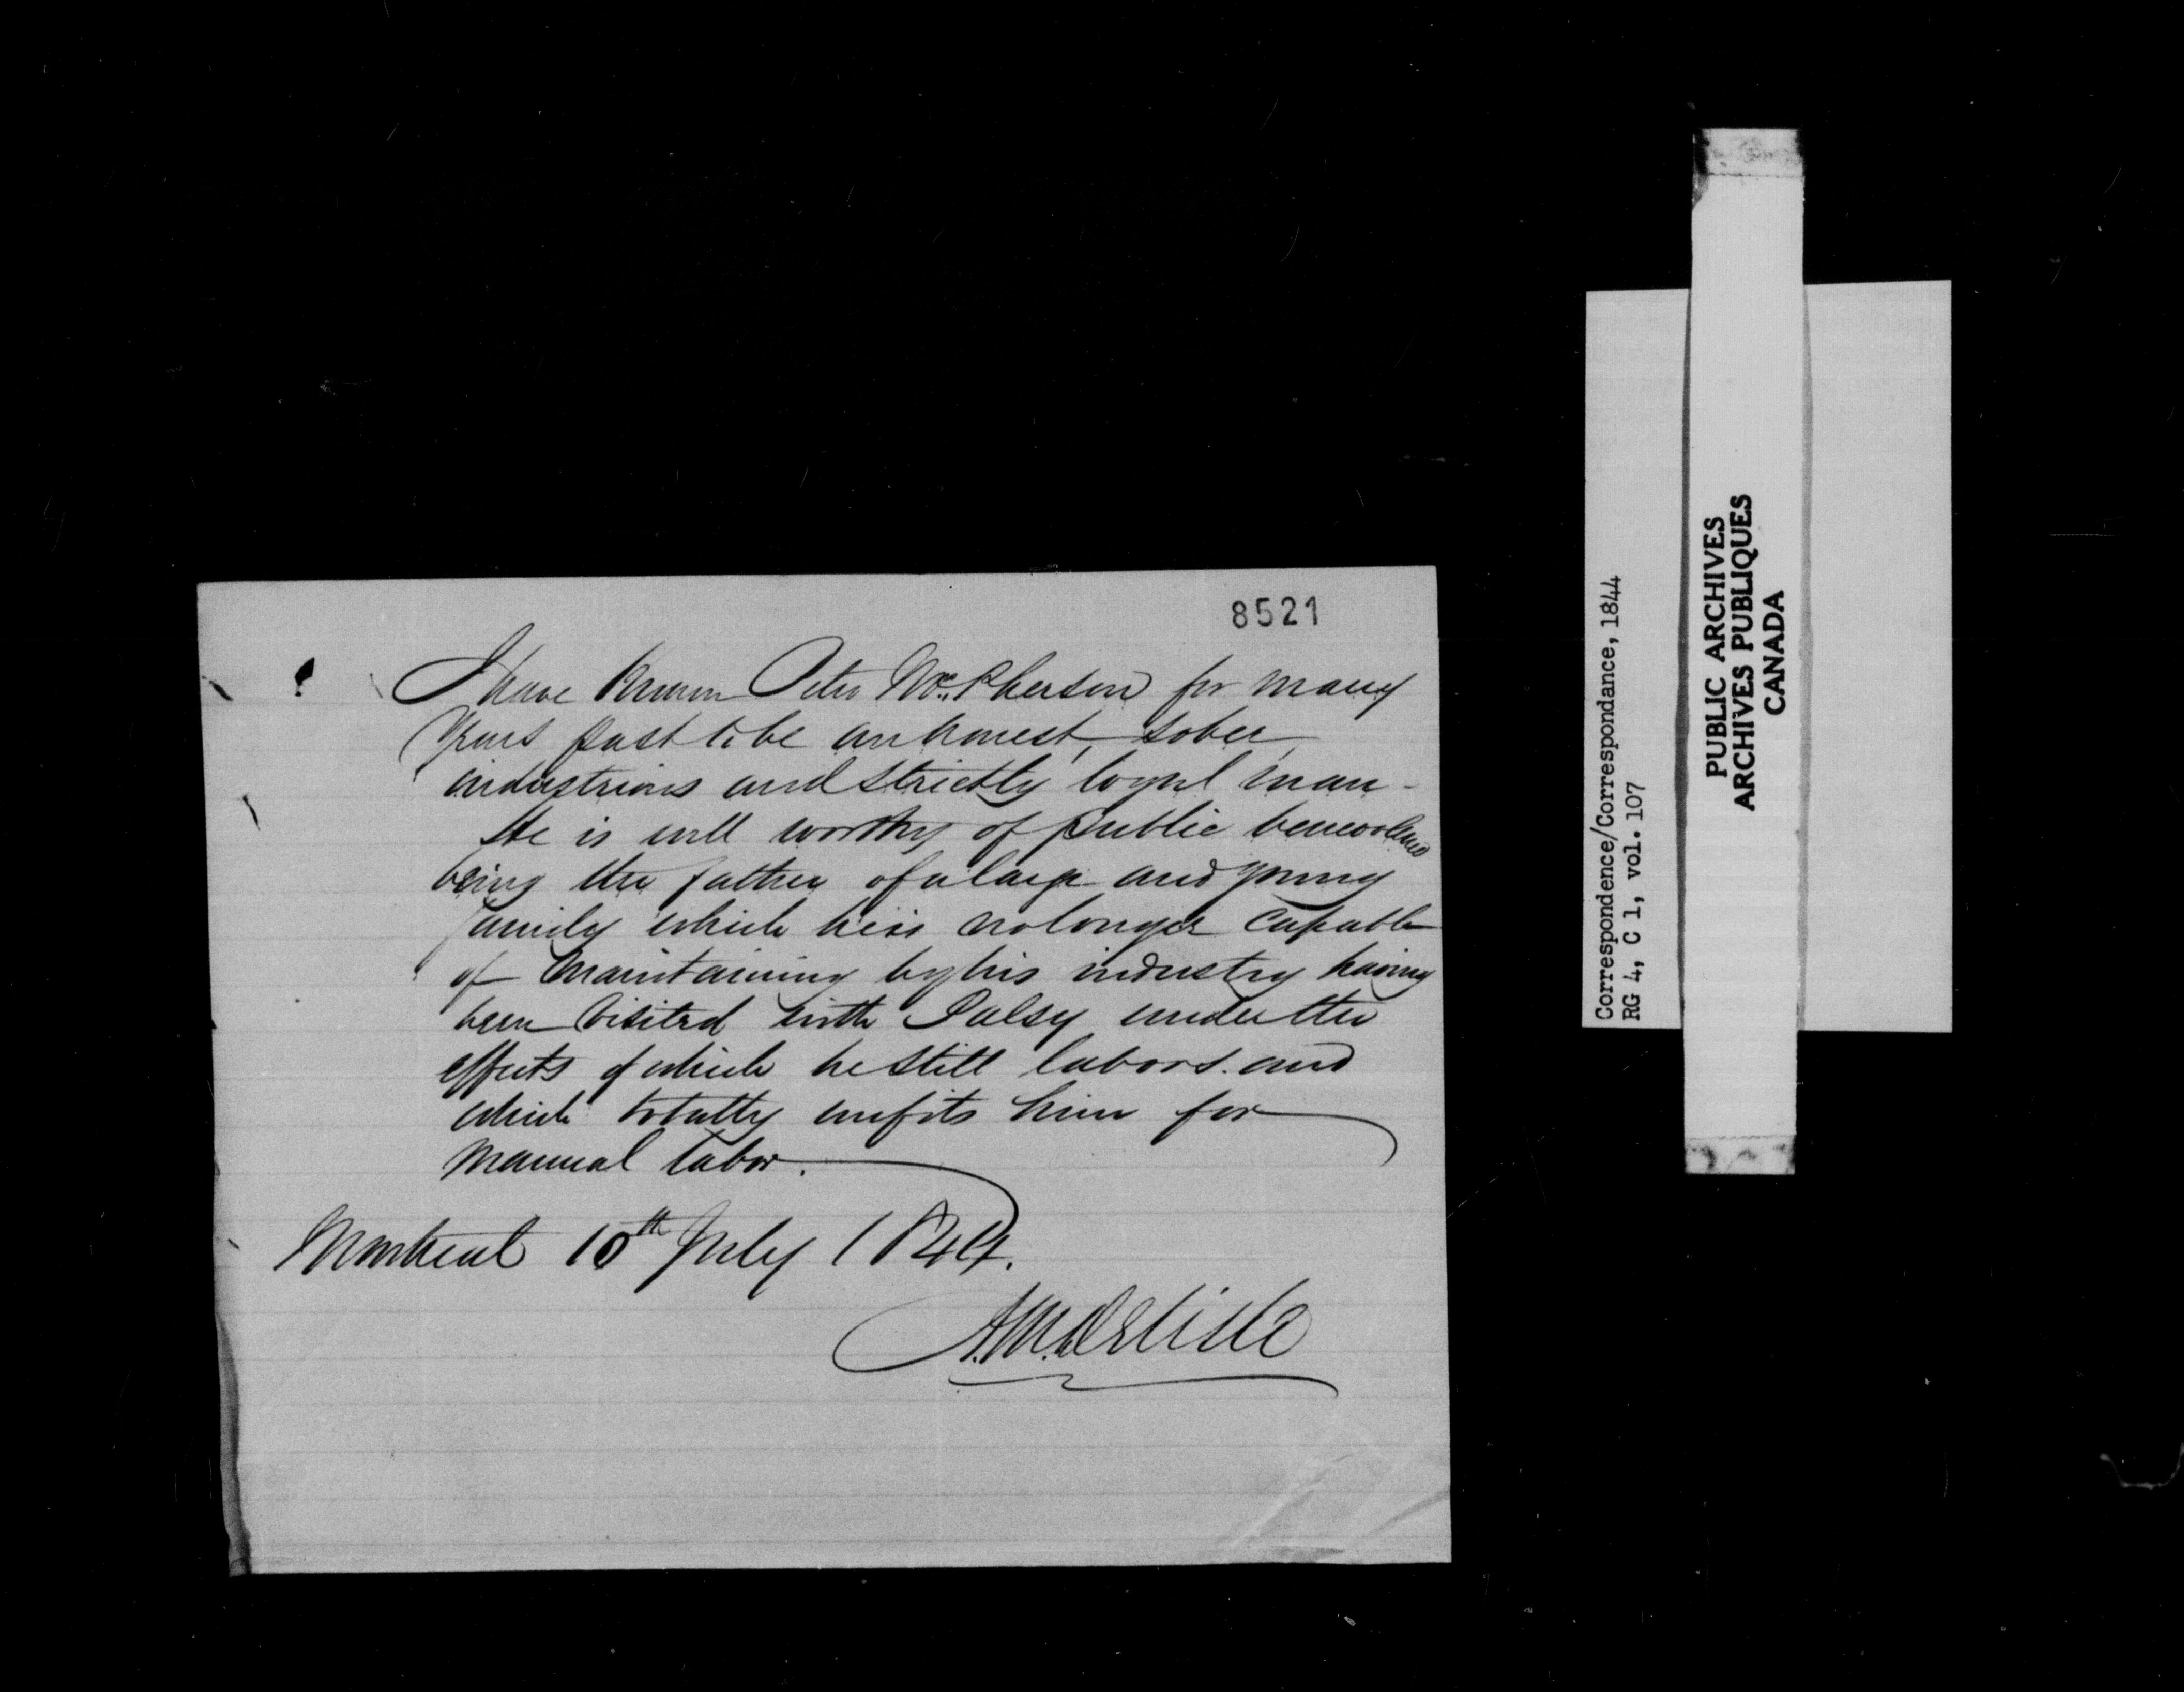 8521
I have known Peter McPherson for many
years past to be an honest, sober,
industrious and strictly loyal man -
He is well worthy of public benevolence
being the father of a large and young
family which he is no longer capable
of maintaining by his industry having
been visited with Palsy under the
effects of which he still labors. and
which totally unfits him for
manual labor.
Montreal 10th July 1844.
A.M. Delisle
Correspondence/Correspondance, 1844
RG 4, C 1, vol. 107
PUBLIC ARCHIVES
ARCHIVES PUBLIQUES
CANADA